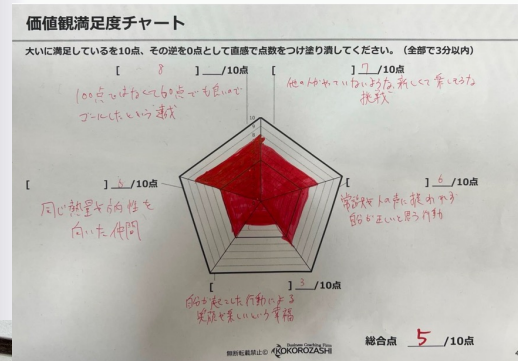 価値観満足度チャート
大いに満足しているを10点、その逆を0点として直感で点数をつけ塗り潰してください。（全部で3分以内）
[ 8 ] /10点
100点ではなくて60点でも良いので
ゴールしたという達成
[ ] 7 /10点
他の人がやっていないような、新しくて楽しそうな
挑戦
[ ] /10点
同じ熱量や方向性を
向いた仲間
[ ] 6 /10点
常識や人の声に
自分が正しいと思う行動
[ ] 3 /10点
自分が した行動による
という幸福
10
総合点 5 /10点
無断転載禁止©
Business Coaching Firm
KOKOROZASHI